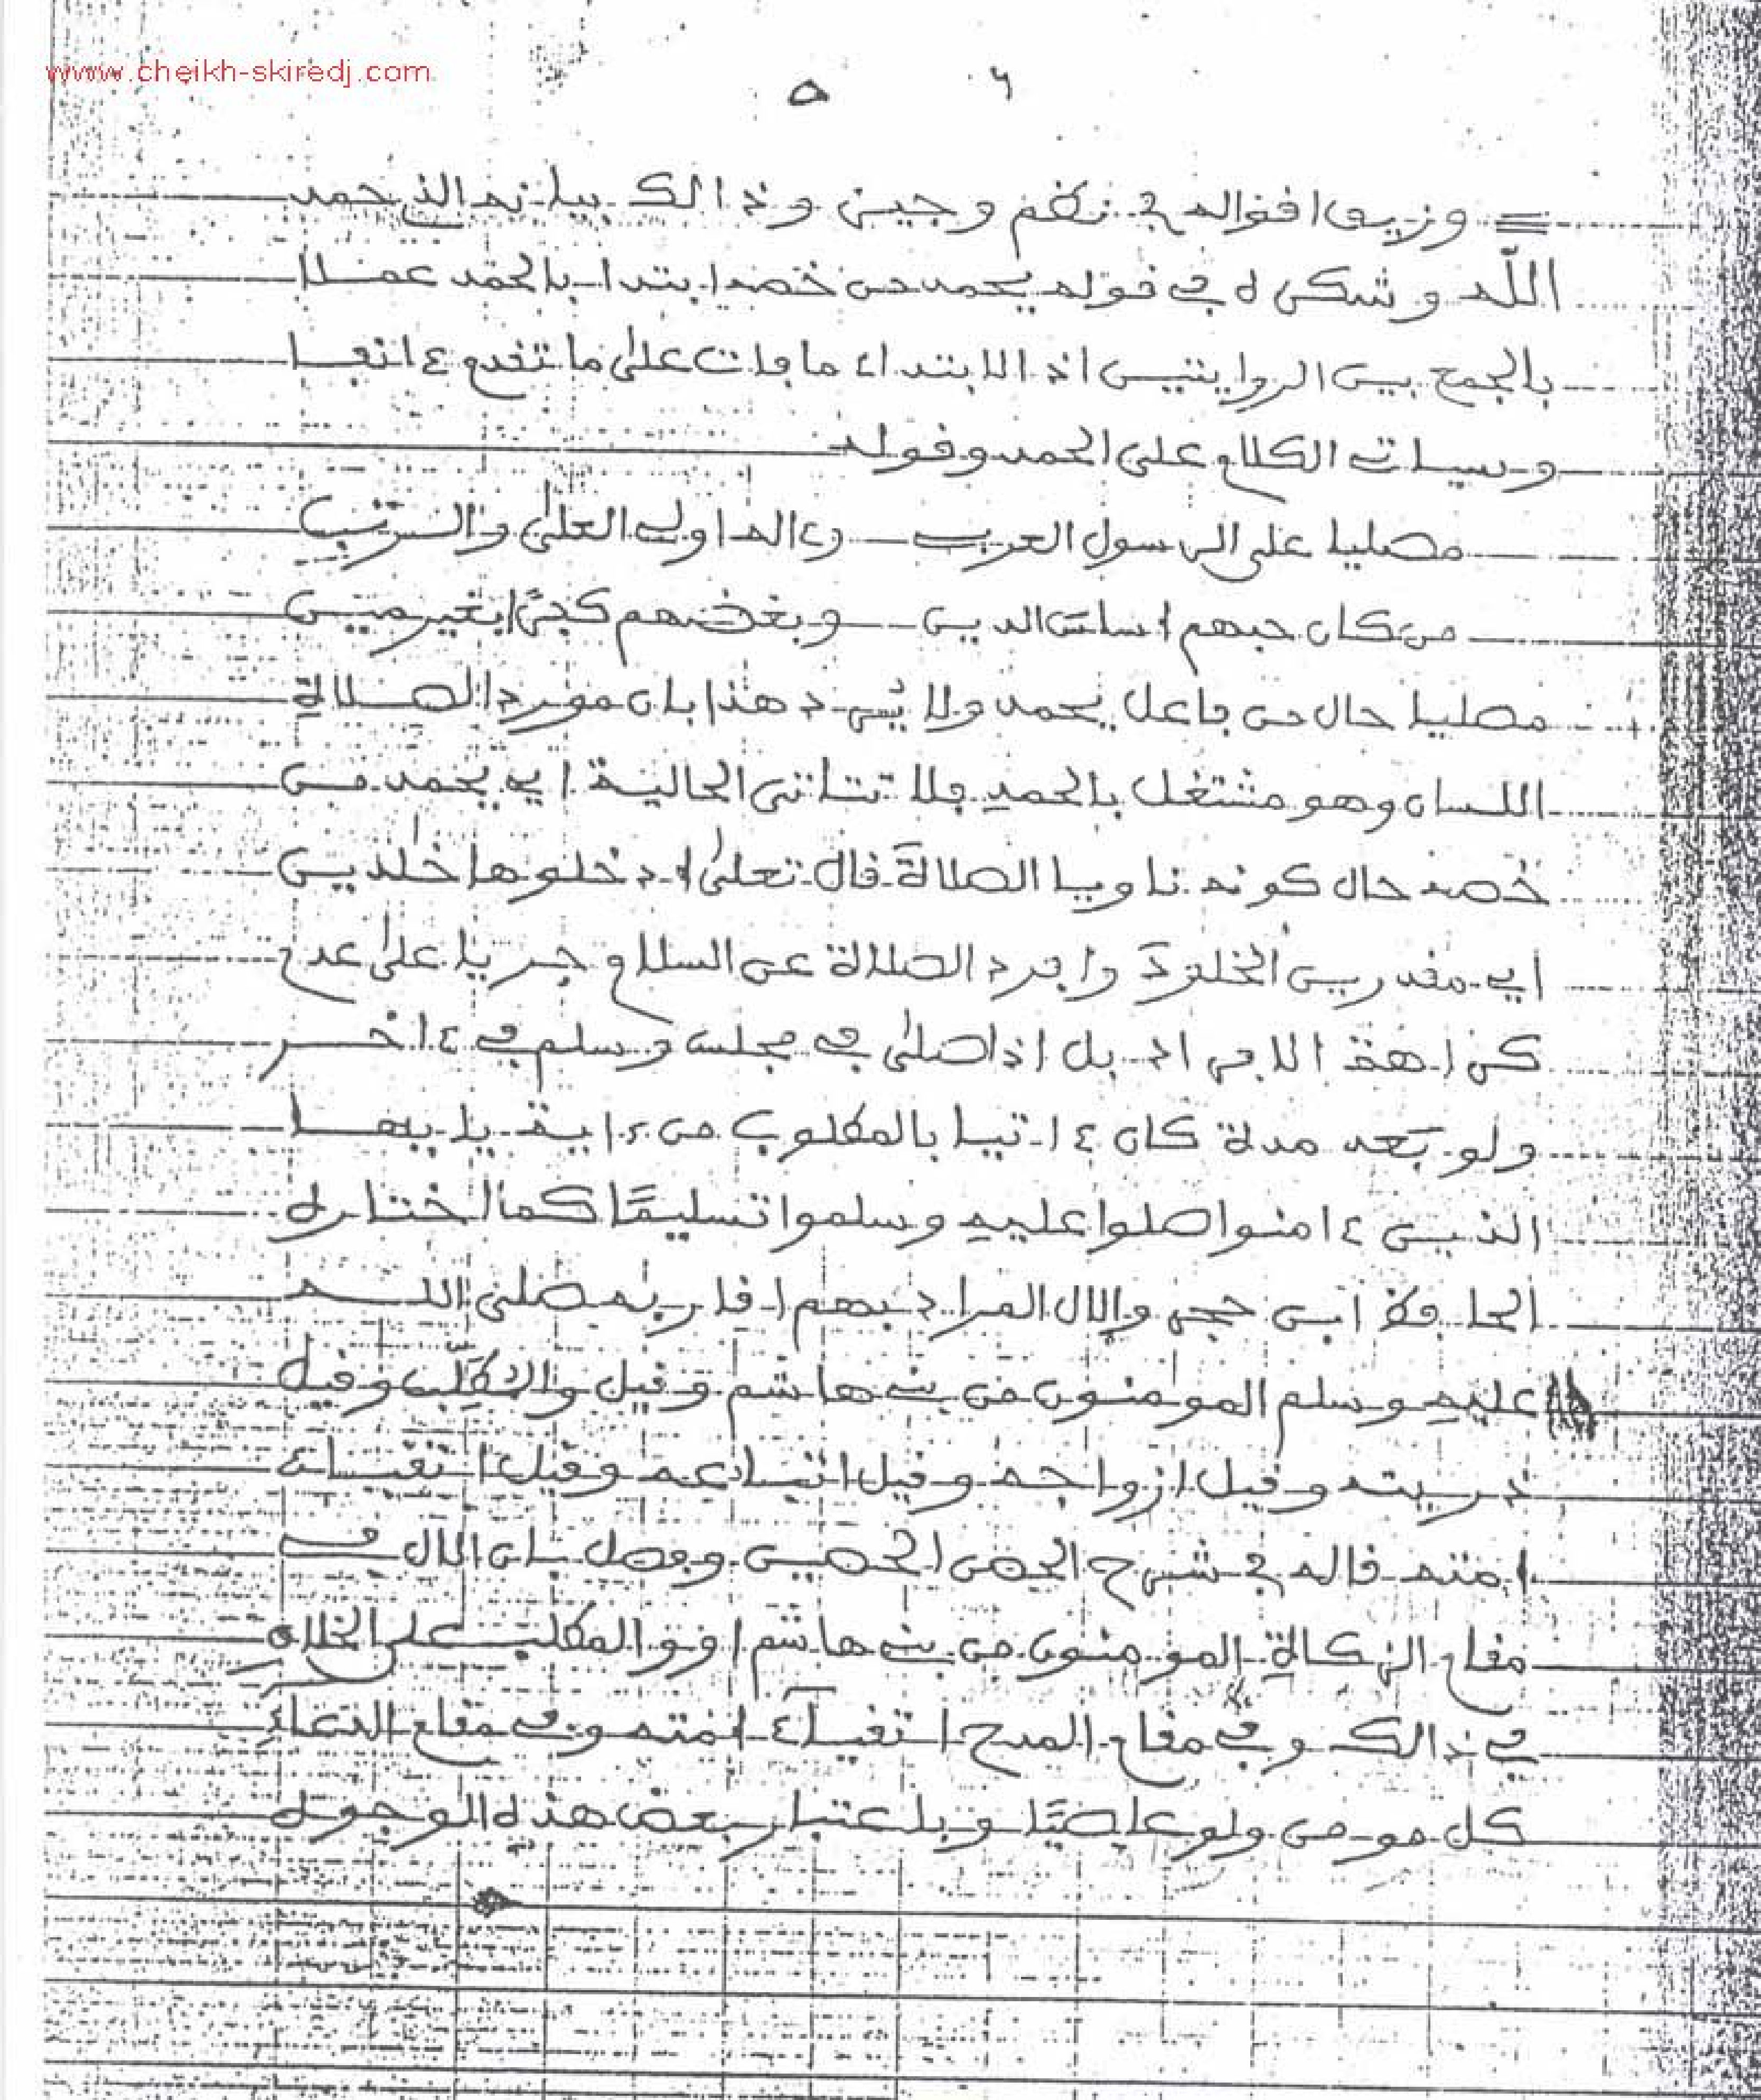 www.cheikh-skiredj.com
٥ ٦
= وزيف اقواله في نظم وجيز وذالك بيانه الذ حمد
اللّه وشكره في قوله يحمد من خصه ابتدا بالحمد عملا
بالجمع بين الروايتين اذ الابتداء مافات على ما تقدم ءانفا
وسياتي الكلام على الحمد وقوله
مصليا على الرسول العربي وءاله اولي العلى والرتب
من كان حبهم اساس الدين وبغضهم كفرا بغير مين
مصليا حال من فاعل يحمد ولا يرد هذا بان مورد الصلاة
اللسان وهو مشتغل بالحمد فلا تتاتى الحالية اي يحمد من
خصه حال كونه ناويا الصلاة قال تعلى ادخلوها خلدين
اي مقدرين الخلود وافرد الصلاة عن السلام جريا على عدم
كراهة الافراد بل اذا صلى في مجلس وسلم في ءاخر
ولو بعد مدة كان ءاتيا بالمطلوب من ءاية يايها
الذين ءامنوا صلوا عليه وسلموا تسليمًا كما اختاره
الحافظ ابن حجر والال المراد بهم اقاربه صلى الله
عليه وسلم المومنون من بني هاشم وقيل والمطلب وقيل
ذريته وقيل ازواجه وقيل اتباعه وقيل اتقياء
امته قاله في شرح الحصن الحصين وفصل بان الال في
مقام الزكاة المومنون من بني هاشم او والمطلب على الخلاف
في ذالك وفي مقام المدح اتقياء امته وفي مقام الدعاء
كل مومن ولو عاصيًا وباعتبار بعض هذه الوجوه